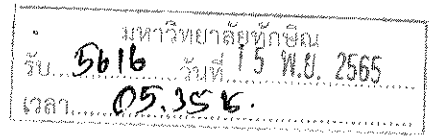 มหาวิทยาลัยทักษิณ
รับ 5616 วันที่ 15 พ.ย. 2565
เวลา 05.35 น.